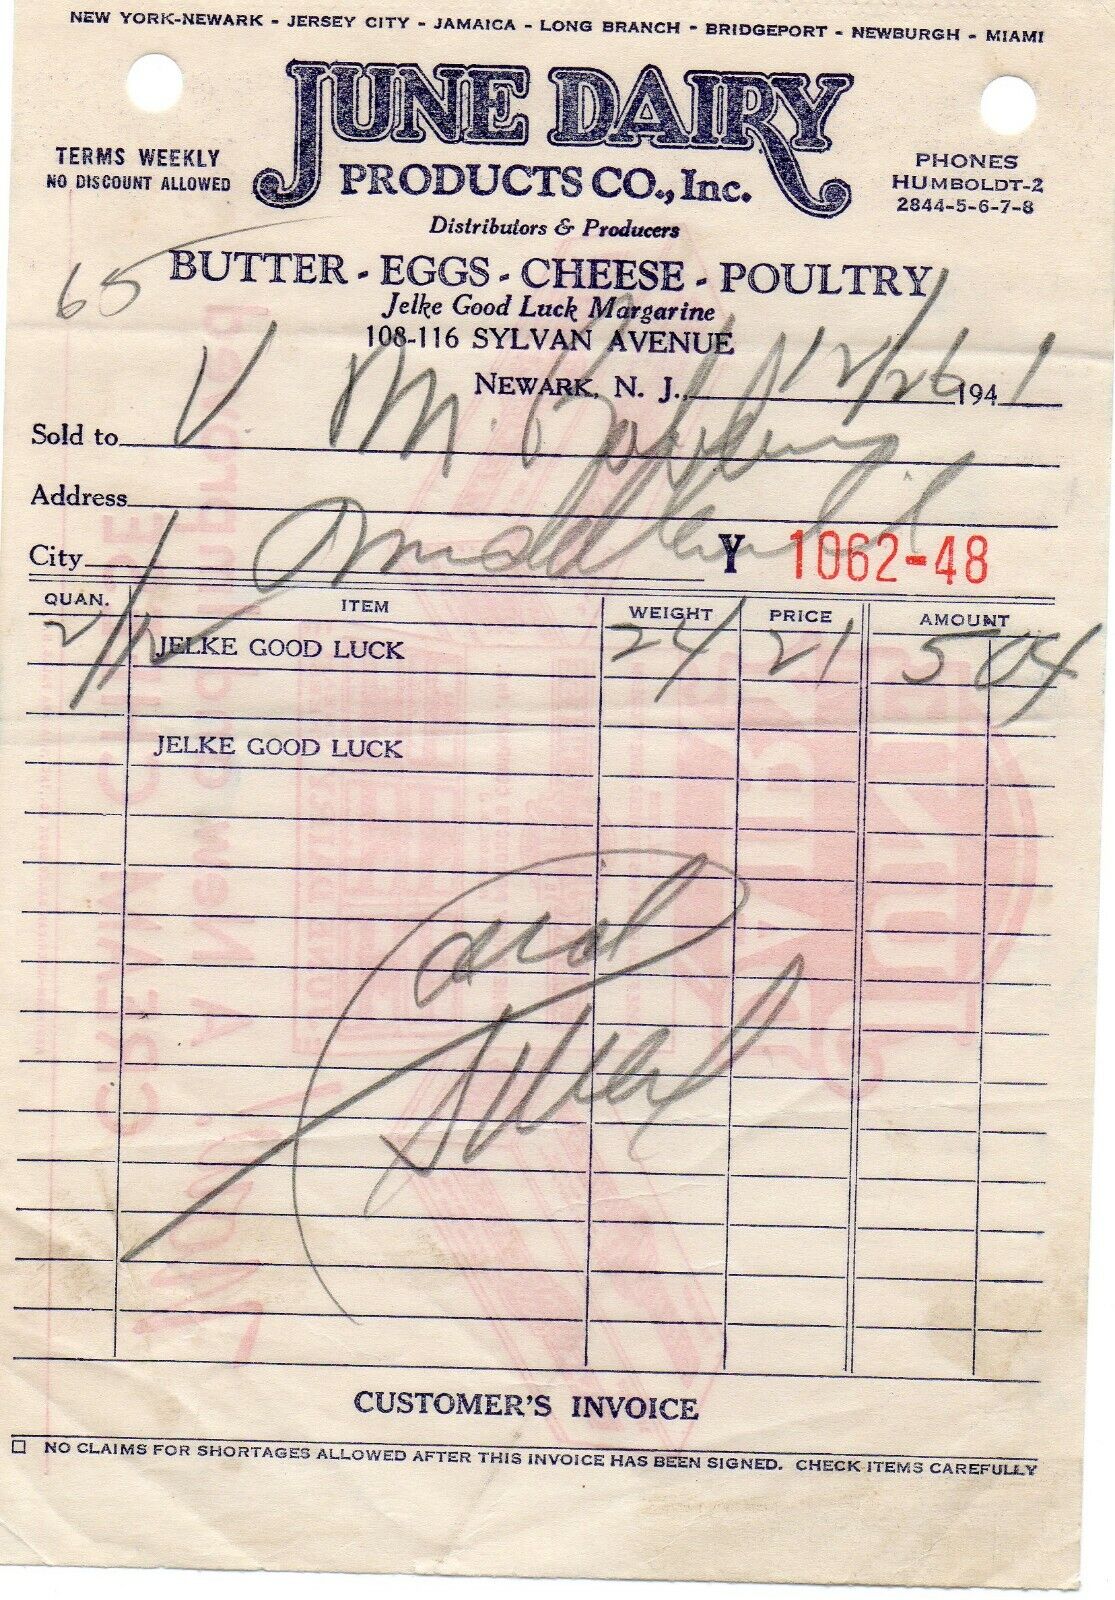 NEW YORK-NEWARK - JERSEY CITY - JAMAICA - LONG BRANCH - BRIDGEPORT - NEWBURGH - MIAMI
JUNE DAIRY
PRODUCTS CO., Inc.
TERMS WEEKLY
NO DISCOUNT ALLOWED
PHONES
HUMBOLDT-2
2844-5-6-7-8
Distributors & Producers
BUTTER - EGGS - CHEESE - POULTRY
65
Jelke Good Luck Margarine
108-116 SYLVAN AVENUE
NEWARK, N. J., 12/26 1941
Sold to V M.
Address
City
Y 1062-48
QUAN. ITEM WEIGHT PRICE AMOUNT
2/12 JELKE GOOD LUCK 24 21 5 04
JELKE GOOD LUCK
Paid
CUSTOMER'S INVOICE
NO CLAIMS FOR SHORTAGES ALLOWED AFTER THIS INVOICE HAS BEEN SIGNED. CHECK ITEMS CAREFULLY